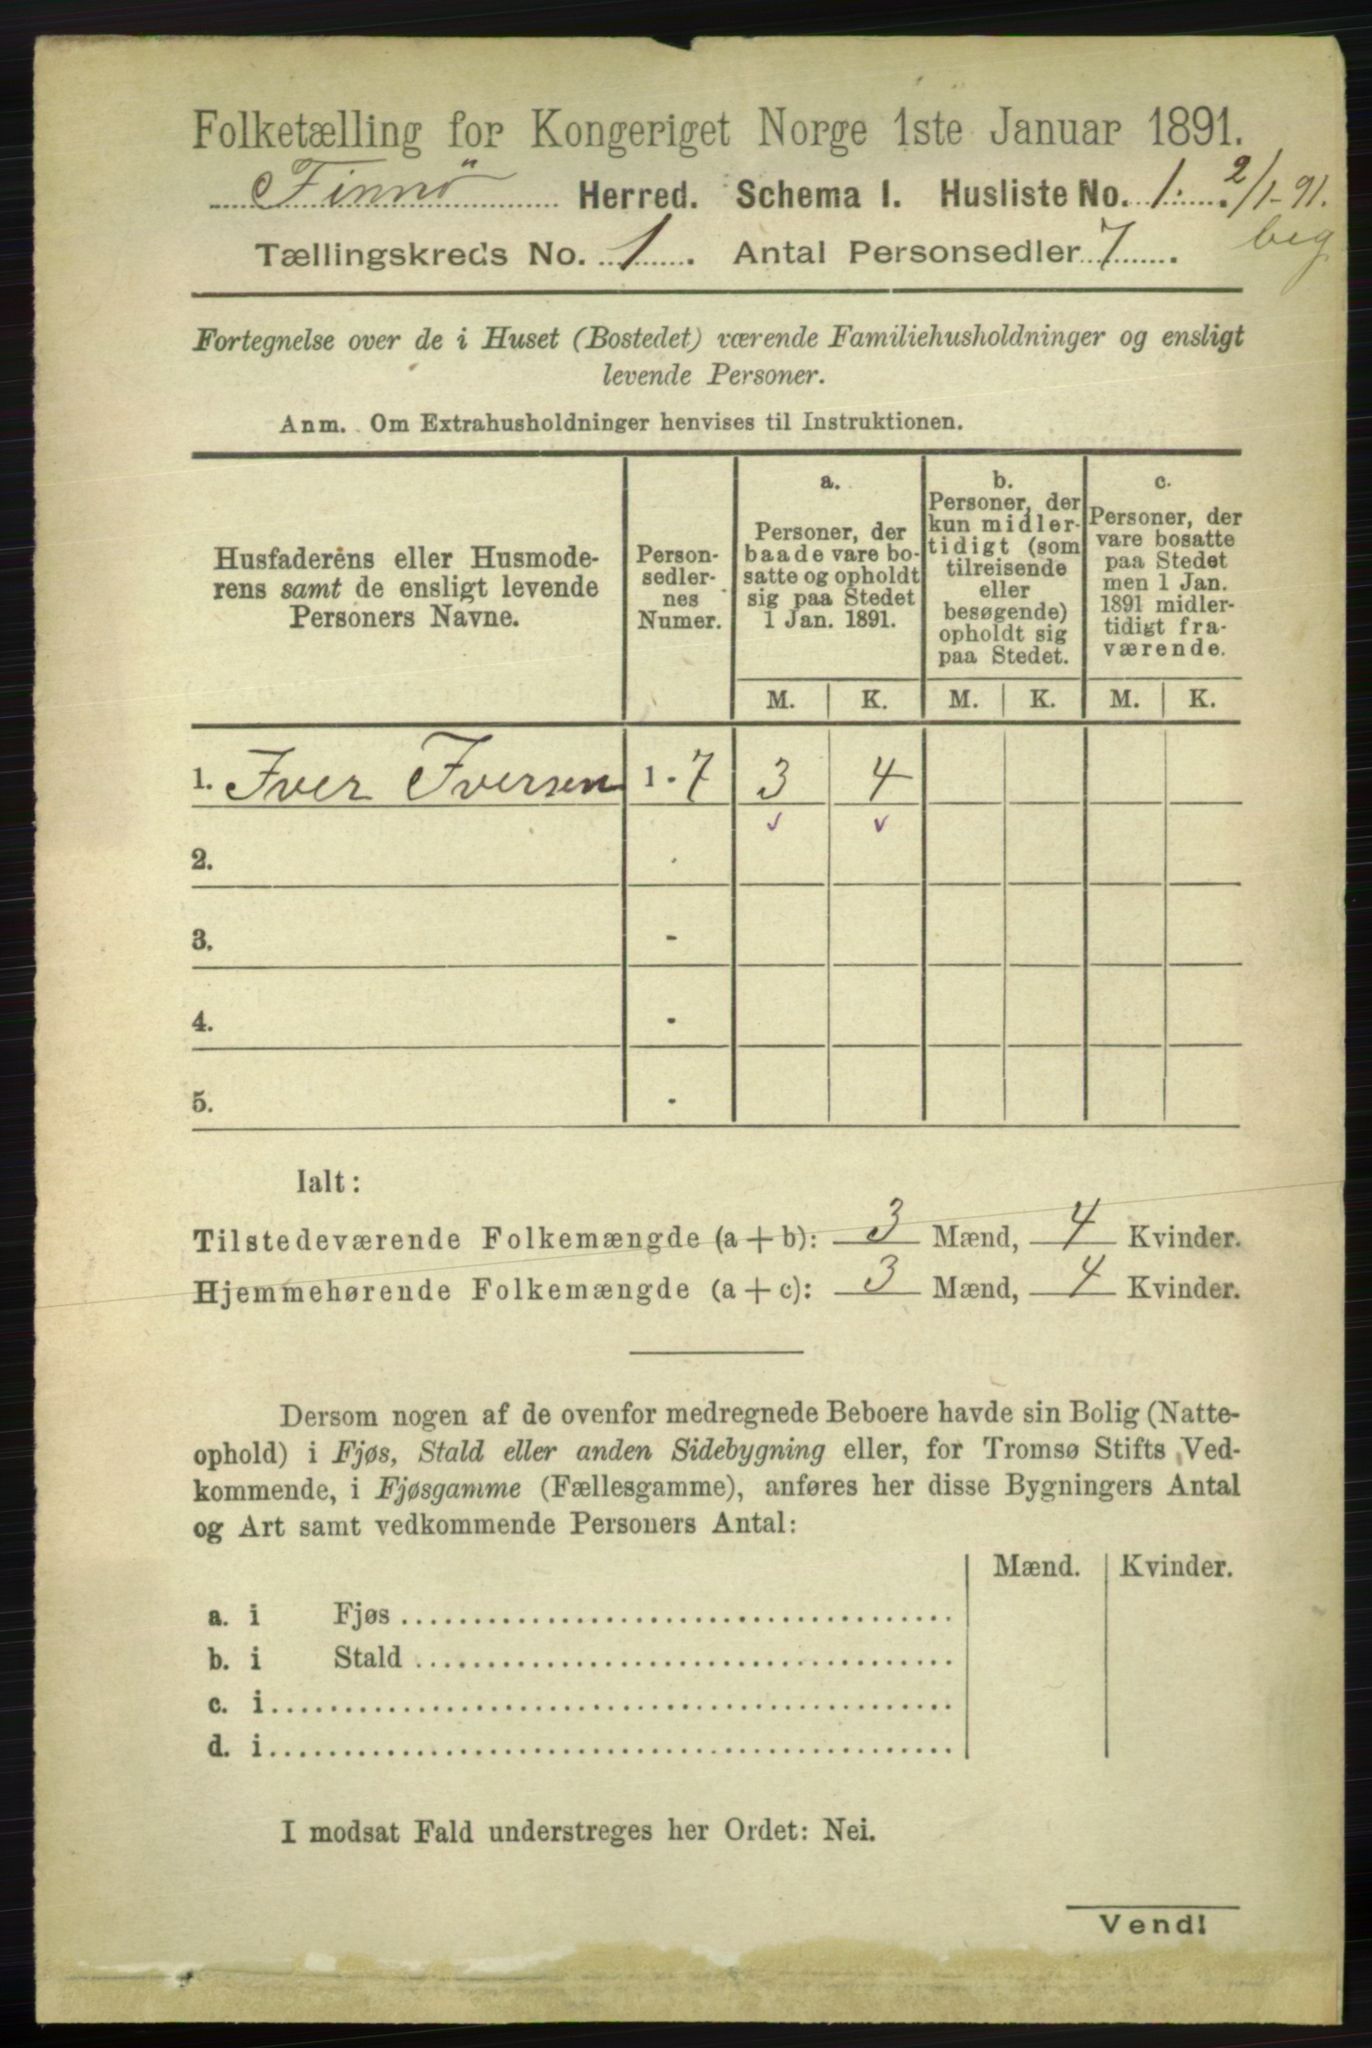 Folketælling for Kongeriget Norge 1ste Januar 1891.
Finnö Herred. Schema I. Husliste No. 1. 2/1-91.
Tællingskreds No. 1. Antal Personsedler 7. beg
Fortegnelse over de i Huset (Bostedet) værende Familiehusholdninger og ensligt
levende Personer.
Anm. Om Extrahusholdninger henvises til Instruktionen.
Husfaderens eller Husmode-
rens samt de ensligt levende
Personers Navne.
Person-
sedler-
nes
Numer.
a.
Personer, der
baade vare bo-
satte og opholdt
sig paa Stedet
1 Jan. 1891.
b.
Personer, der
kun midler-
tidigt (som
tilreisende
eller
besøgende)
opholdt sig
paa Stedet.
c.
Personer, der
vare bosatte
paa Stedet
men 1 Jan.
1891 midler-
tidigt fra-
værende.
M. K. M. K. M. K.
1. Iver Iversen 1 - 7 3 4
2.
3. -
4. -
5. -
Ialt:
Tilstedeværende Folkemængde (a + b): 3 Mænd, 4 Kvinder.
Hjemmehørende Folkemængde (a + c): 3 Mænd, 4 Kvinder.
Dersom nogen af de ovenfor medregnede Beboere havde sin Bolig (Natte-
ophold) i Fjøs, Stald eller anden Sidebygning eller, for Tromsø Stifts Ved-
kommende, i Fjøsgamme (Fællesgamme), anføres her disse Bygningers Antal
og Art samt vedkommende Personers Antal:
Mænd. Kvinder.
a. i Fjøs
b. i Stald
c. i
d. i
I modsat Fald understreges her Ordet: Nei.
Vend!